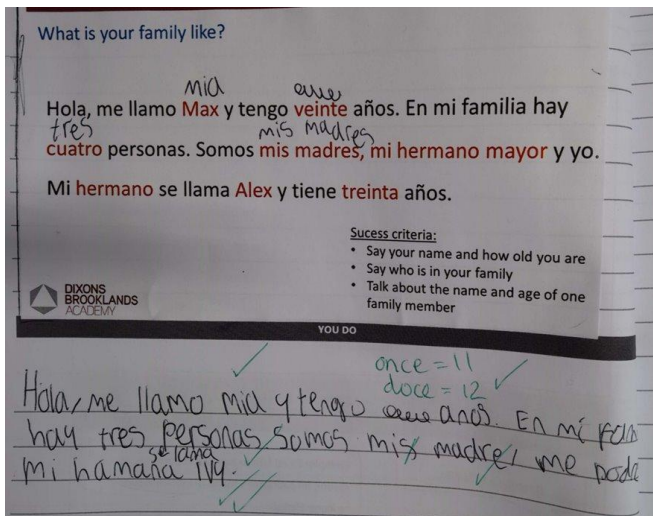 What is your family like?
mia
Hola, me llamo Max y tengo veinte años. En mi familia hay
tres mis madres
cuatro personas. Somos mis madres, mi hermano mayor y yo.
Mi hermano se llama Alex y tiene treinta años.
Sucess criteria:
• Say your name and how old you are
• Say who is in your family
• Talk about the name and age of one
family member
DIXONS
BROOKLANDS
ACADEMY
YOU DO
once = 11
doce = 12
Hola, me llamo mia y tengo anos. En mi fam
hay tres personas Somos mis madre, me
se lama
mi hamana Ivy.